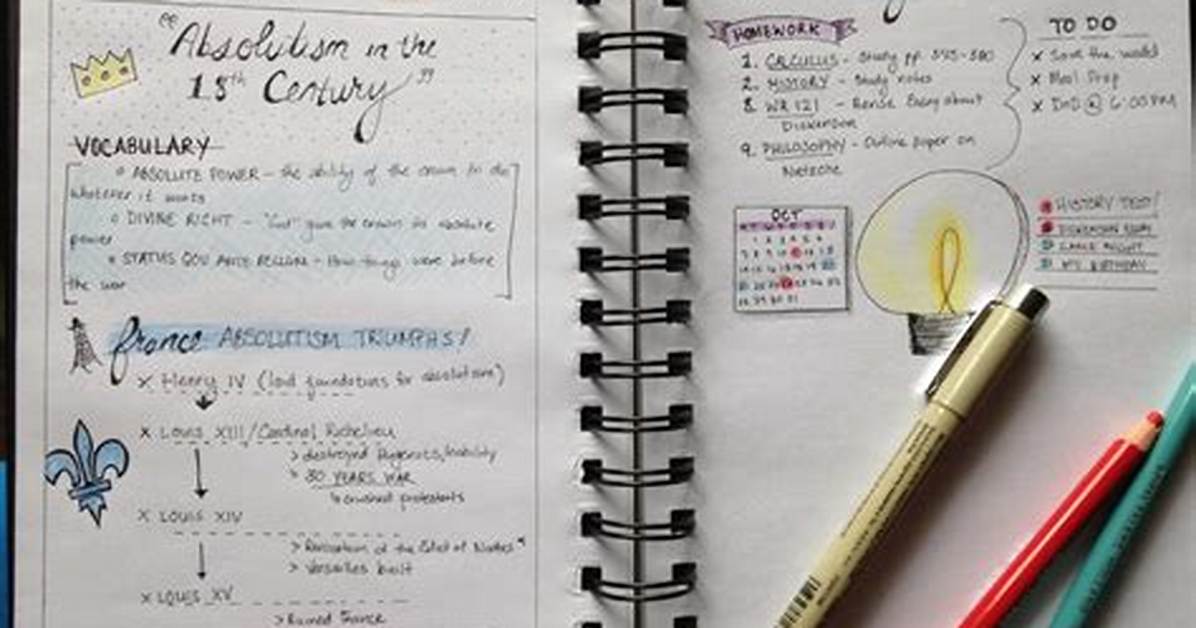 "Absolutism in the
18th Century"
VOCABULARY
ABSOLUTE POWER - the ability of the crown to do
whatever it wants
DIVINE RIGHT - "God" gave the crown its absolute
power
STATUS QOU ANTE BELLUM - How things were before
the war
france ABSOLUTISM TRIUMPHS!
x Henry IV (laid foundations for absolutism)
x Louis XIII/Cardinal Richelieu
> destroyed Hugenots, nobility
30 YEARS WAR
crushed protestants
x LOUIS XIV
> Revocation of the Edict of Nantes
> Versailles built
x LOUIS XV
> Ruined France
HOMEWORK
1. CALCULUS - Study pp 545-580
2. HISTORY - Study notes
3. WR 121 - Revise Essay about
Dickenson
4. PHILOSOPHY - Outline paper on
Nietzche
TO DO
x Save the world
x Meal Prep
x DnD @ 6:00 PM
OCT
HISTORY TEST!
DICKENSON ESSAY
GAME NIGHT
MY BIRTHDAY